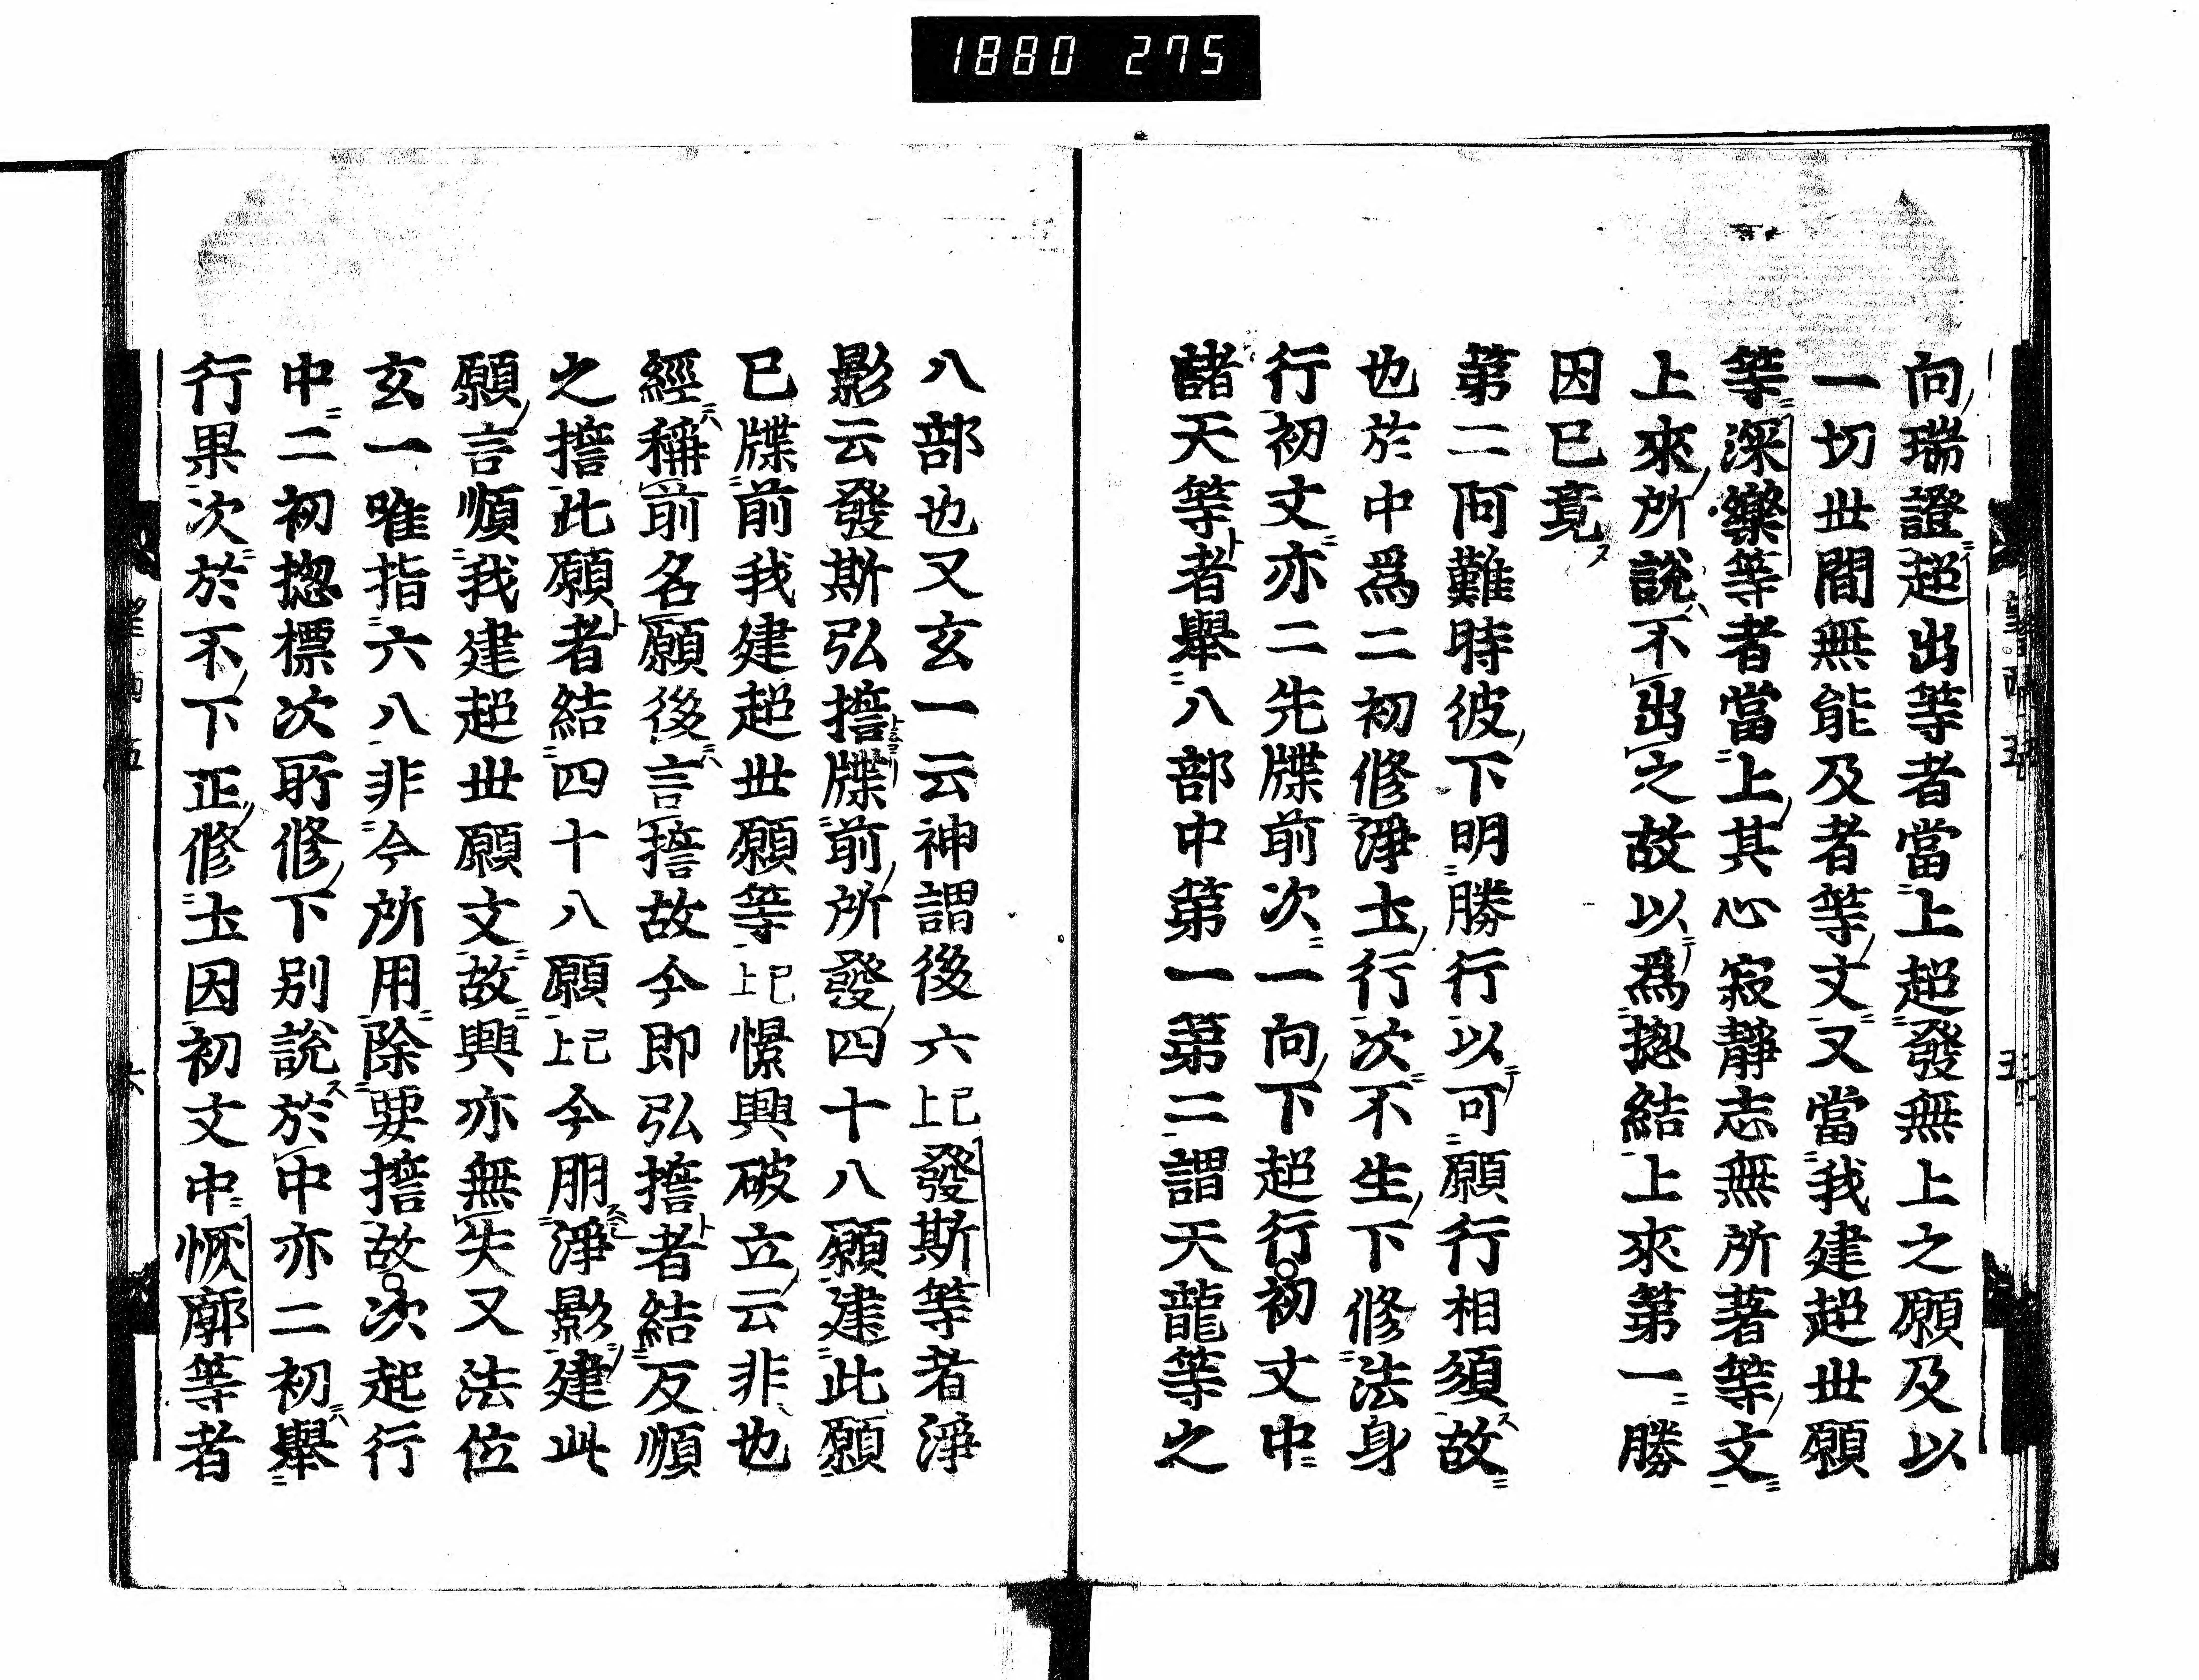 1880 275
向瑞證超出等者當上超發無上之願及以
一切世間無能及者等文又當我建超世願
等深樂等者當上其心寂靜志無所著等文
上來所說不出之故以爲揔結上來第一勝
因已竟
第二阿難時彼下明勝行以可願行相須故
也於中爲二初修淨土行次不生下修法身
行初文亦二先牒前次一向下起行初文中
諸天等者舉八部中第一第二謂天龍等之
八部也又玄一云神謂後六已上發斯等者淨
影云發斯弘擔牒前所發四十八願建此願
已牒前我建超世願等已上憬興破立云非也
經稱前名願後言擔故今即弘擔者結反順
之擔此願者結四十八願已上今朋淨影建此
願言順我建超世願文故興亦無失又法位
玄一唯指六八非今所用除要擔故次起行
中二初揔標次所修下別說於中亦二初舉
行果次於不下正修土因初文中恢廓等者